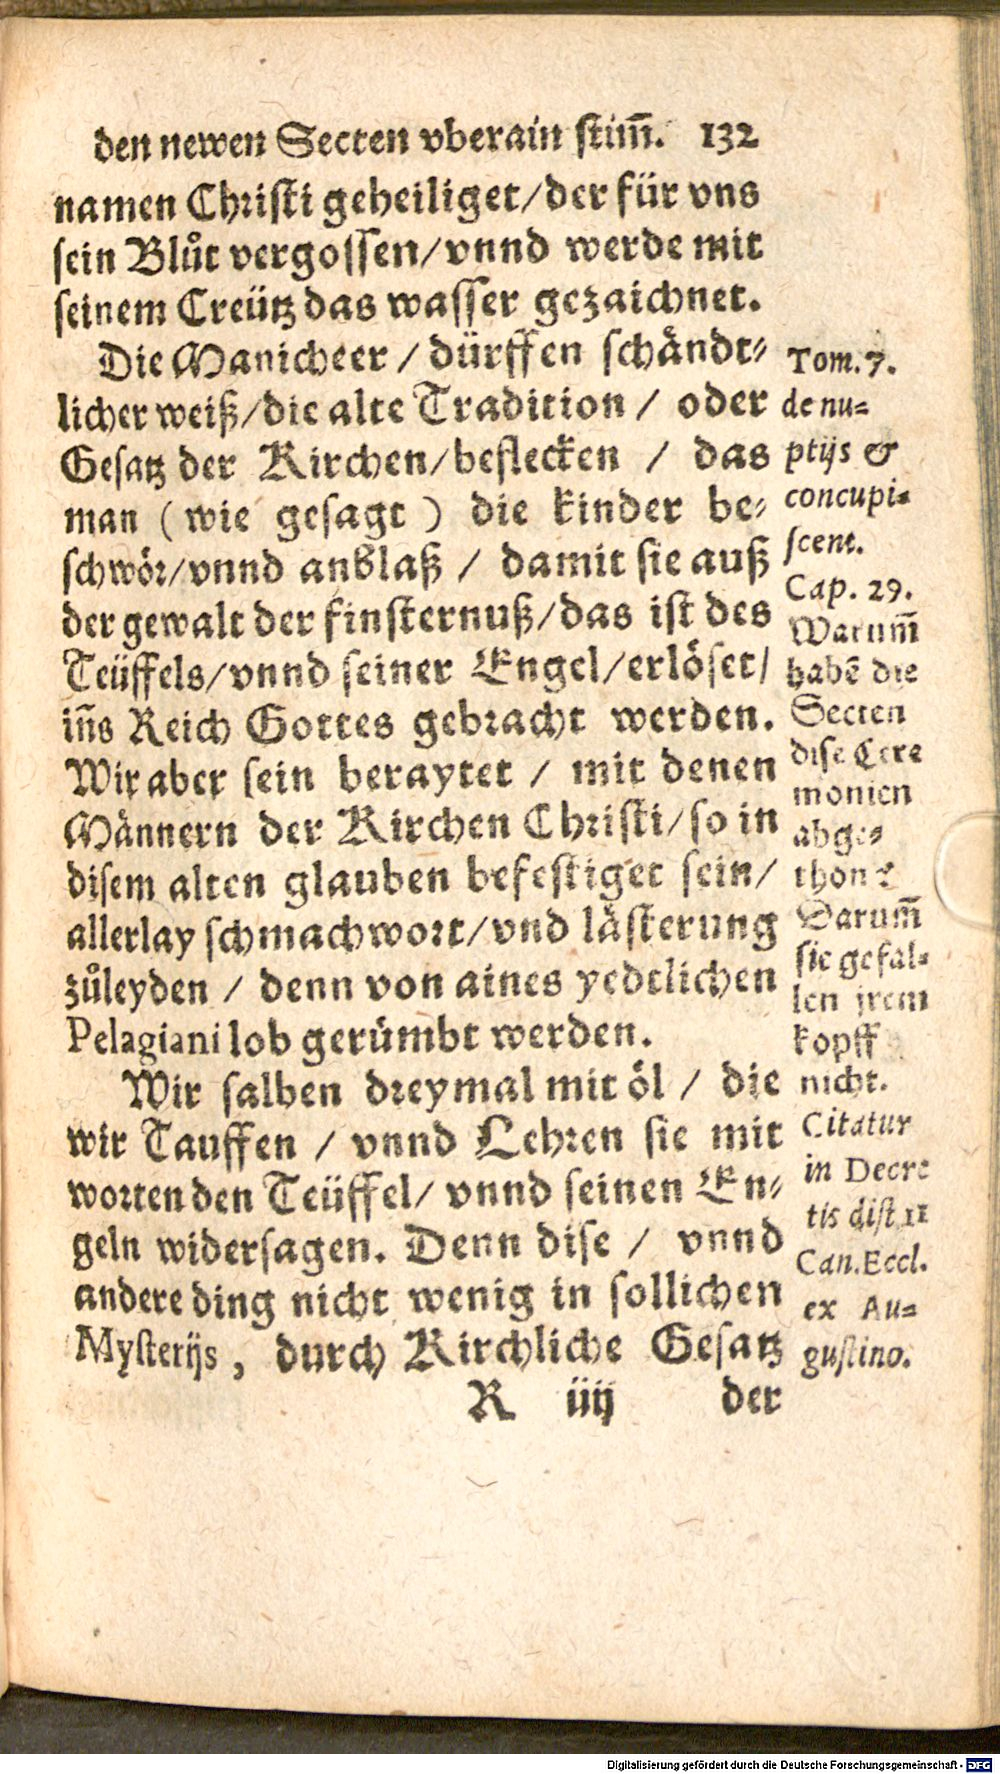 den newen Secten vberain stim̃. 132
namen Christi geheiliget/der für vns
sein Blůt vergossen/vnnd werde mit
seinem Creütz das wasser gezaichnet.
Die Manicheer / dürffen schändt⸗
licher weiß/die alte Tradition / oder
Gesatz der Kirchen/beflecken / das
man (wie gesagt) die kinder be⸗
schwör/vnnd anblaß / damit sie auß
der gewalt der finsternuß/das ist des
Teüffels/vnnd seiner Engel/erlöset/
iñs Reich Gottes gebracht werden.
Wir aber sein beraytet / mit denen
Männern der Kirchen Christi/so in
disem alten glauben befestiget sein/
allerlay schmachwort/vnd lästerung
zůleyden / denn von aines yedtlichen
Pelagiani lob gerümbt werden.
Wir salben dreymal mit öl / die
wir Tauffen / vnnd Lehren sie mit
worten den Teüffel/ vnnd seinen En⸗
geln widersagen. Denn dise / vnnd
andere ding nicht wenig in sollichen
Mysterijs, durch Kirchliche Gesatz
R iiij der
Tom. 7.
de nu=
ptijs &
concupi=
scent.
Cap. 29.
Warum̃
habẽ die
Secten
dise Cere
monien
abge⸗
thon?
Darum̃
sie gefal⸗
len jrem
kopff
nicht.
Citatur
in Decre
tis dist 11
Can. Eccl.
ex Au=
gustino.
Digitalisierung gefördert durch die Deutsche Forschungsgemeinschaft - DFG